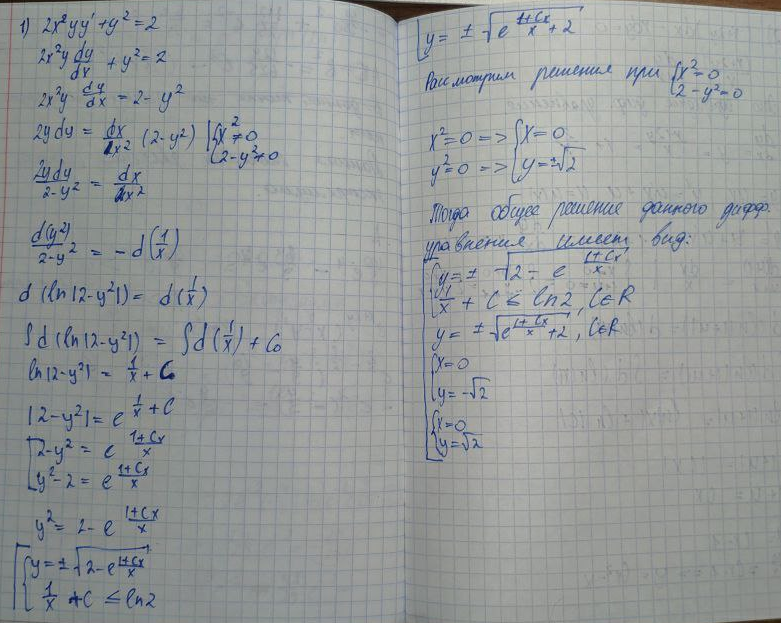 1) 2x²yy' + y² = 2
2x²y dy/dx + y² = 2
2x²y · dy/dx = 2 - y²
2y dy = dx/x² (2-y²) | { x² ≠ 0
2-y² ≠ 0
2y dy/(2-y²) = dx/x²
d(y²)/(2-y²) = - d(1/x)
d (ln |2-y²|) = d(1/x)
∫ d (ln |2-y²|) = ∫ d(1/x) + C₀
ln |2-y²| = 1/x + C
|2-y²| = e^(1/x + C)
[ 2-y² = e^((1+Cx)/x)
y²-2 = e^((1+Cx)/x)
y² = 2 - e^((1+Cx)/x)
[ { y = ± √(2-e^((1+Cx)/x))
1/x + C ≤ ln2
[ y = ± √(e^((1+Cx)/x) + 2)
Рассмотрим решения при { x² = 0
2-y² = 0
x² = 0 => { x = 0
y² = 0 => y = ±√2
Тогда общее решение данного дифф.
уравнения имеет вид:
[ { y = ± √(2 - e^((1+Cx)/x))
1/x + C ≤ ln2, C∈R
y = ± √(e^((1+Cx)/x) + 2), C∈R
{ x = 0
y = -√2
{ x = 0
y = √2